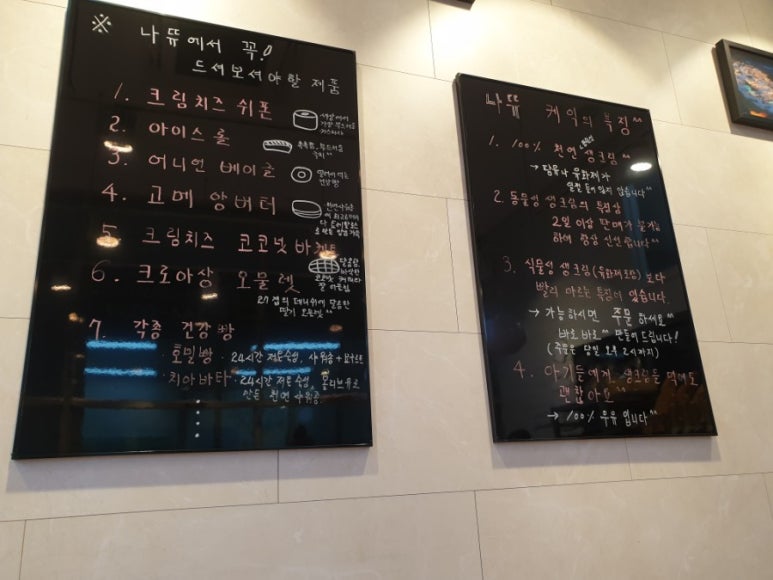 ※ 나뜌에서 꼭!
드셔보셔야할 제품
1. 크림치즈 쉬폰
2. 아이스롤
3. 어니언 베이글
4. 고메 앙버터
5. 크림치즈 코코넛 바게트
6. 크로아상 오믈렛
27겹의 데니쉬에 달콤한
딸기 오믈렛^^
7. 각종 건강빵
호밀빵 · 24시간 저온숙성, 사워종+요구르트
치아바타 · 24시간 저온숙성, 올리브유로
만든 천연 사워종.
나뜌 케익의 특징^^
1. 100% 천연 생크림^^
→ 탐유나 유화제가
일절 들어있지 않습니다^^
2. 동물성 생크림의 특징상
2일 이상 판매가 불가능
하여 항상 신선합니다^^
3. 식물성 생크림(유화제포함) 보다
빨리 마르는 특징이 있습니다.
→ 가능하시면 주문하세요^^
바로바로^^ 만들어 드립니다!
(주문은 당일 오후 2시까지)
4. 아기들에게 생크림을 먹여도
괜찮아요^^
→ 100% 우유입니다^^